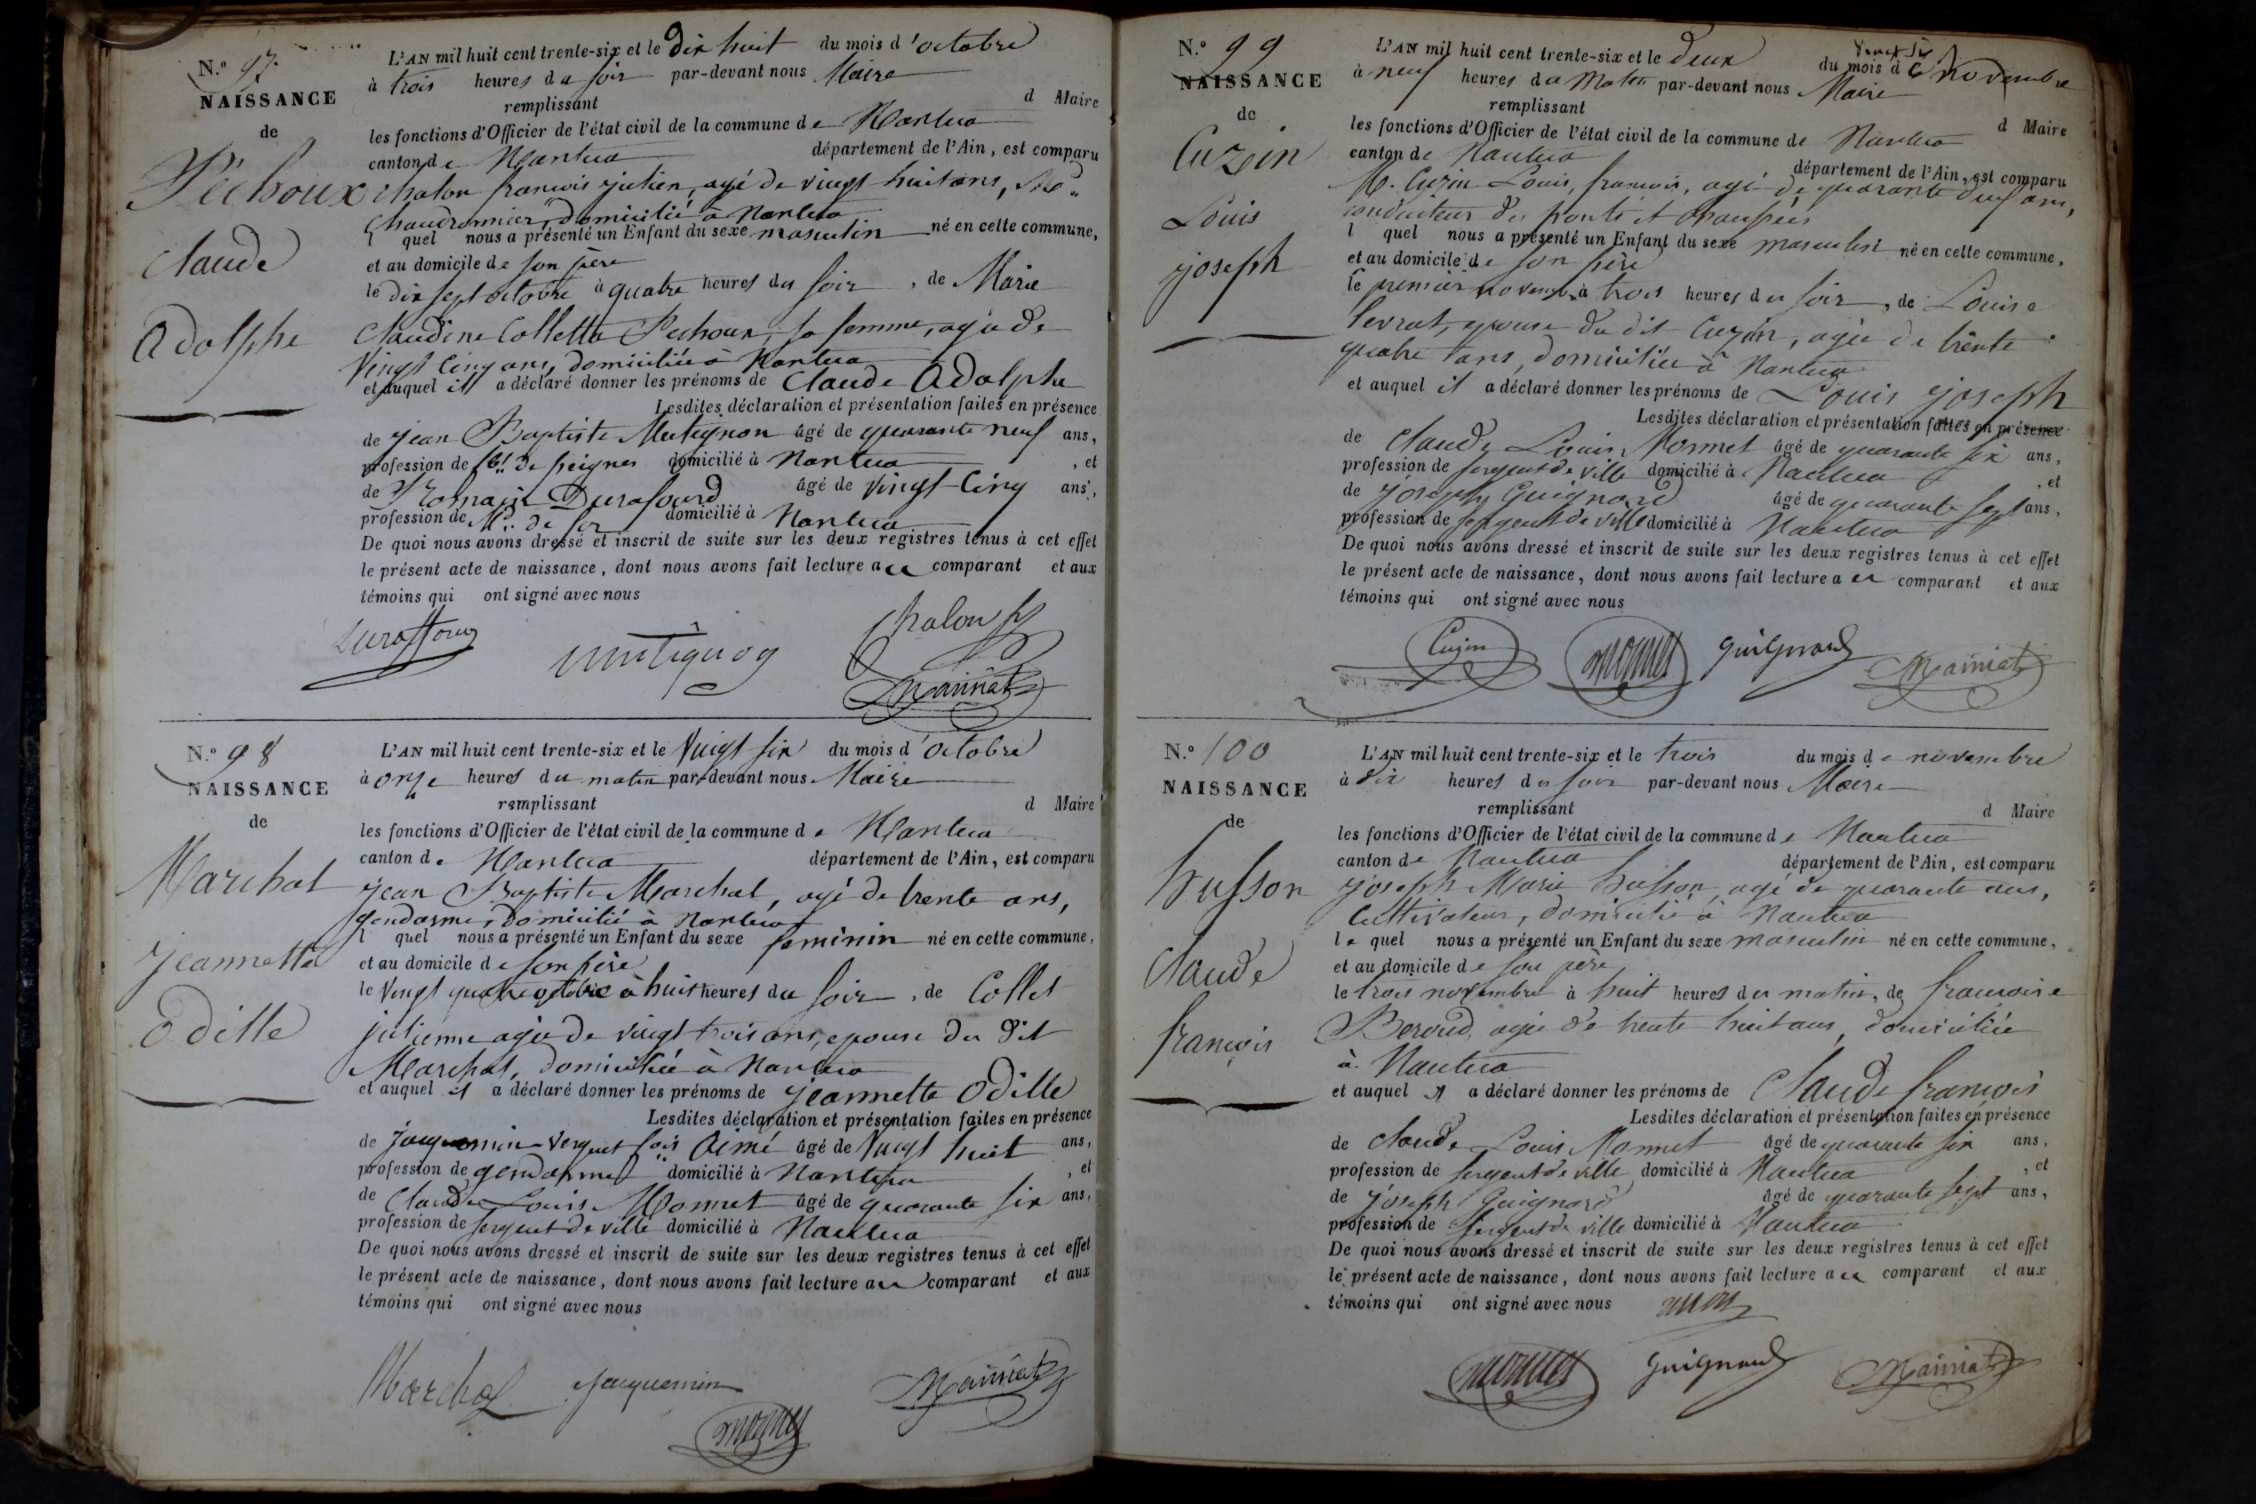 N.° 97.
NAISSANCE
de
Péchoux
Claude
Adolphe
L'AN mil huit cent trente-six et le Dix huit du mois d'octobre
à trois heures du soir par-devant nous Maire
remplissant d Maire
les fonctions d'Officier de l'état civil de la commune de Nantua
canton de Nantua département de l'Ain, est comparu
chalon francois julien, agé de vingt-huit ans, M.d
Chaudronnier, domicilié à Nantua
l quel nous a présenté un Enfant du sexe masculin né en cette commune,
et au domicile de son père
le dix sept octobre à quatre heures du soir, de Marie
Claudine Collette Pechoux, sa femme, agée de
vingt cinq ans, domiciliée à Nantua
et auquel il a déclaré donner les prénoms de Claude Adolphe
Lesdites déclaration et présentation faites en présence
de jean Baptiste Mutignon âgé de quarante neuf ans,
profession de f.t de peignes domicilié à Nantua, et
de Romain Durafourd âgé de vingt-Cinq ans,
profession de M.d de fer domicilié à Nantua
De quoi nous avons dressé et inscrit de suite sur les deux registres tenus à cet effet
le présent acte de naissance, dont nous avons fait lecture au comparant et aux
témoins qui ont signé avec nous
Duraffourd mutignon Chalon fj
Mainiat
N.° 98
NAISSANCE
de
Marchal
jeannette
Odille
L'AN mil huit cent trente-six et le Vingt six du mois d'octobre
à onze heures du matin par-devant nous Maire
remplissant d Maire
les fonctions d'Officier de l'état civil de la commune de Nantua
canton de Nantua département de l'Ain, est comparu
jean Baptiste Marchal, agé de trente ans,
gendarme, domicilié à Nantua
l quel nous a présenté un Enfant du sexe feminin né en cette commune,
et au domicile de son père
le vingt quatre octobre à huit heures du soir, de Collet
julienne agée de vingt trois ans, epouse du dit
Marchal, domiciliée à Nantua
et auquel il a déclaré donner les prénoms de jeannette Odille
Lesdites déclaration et présentation faites en présence
de jacquemin Aimé âgé de Vingt huit ans,
profession de gendarme domicilié à Nantua, et
de Claude Louis Monnet âgé de quarante six ans,
profession de sergent de ville domicilié à Nantua
De quoi nous avons dressé et inscrit de suite sur les deux registres tenus à cet effet
le présent acte de naissance, dont nous avons fait lecture au comparant et aux
témoins qui ont signé avec nous
Marchal Jacquemin Mainiat
monnet
N.° 99
NAISSANCE
de
Cuzin
Louis
joseph
L'AN mil huit cent trente-six et le deux du mois de novembre
à neuf heures du Matin par-devant nous Maire
remplissant d Maire
les fonctions d'Officier de l'état civil de la commune de Nantua
canton de Nantua département de l'Ain, est comparu
M. Cuzin Louis, francois, agé de quarante deux ans,
conducteur des ponts et chaussées
l quel nous a présenté un Enfant du sexe masculin né en cette commune,
et au domicile de son père
le premier novembre à trois heures du soir, de Louise
Levrat, epouse du dit Cuzin, agée de trente
quatre ans, domiciliée à Nantua
et auquel il a déclaré donner les prénoms de Louis joseph
Lesdites déclaration et présentation faites en présence
de Claude Louis Monnet âgé de quarante six ans,
profession de sergent de ville domicilié à Nantua, et
de joseph Guignard âgé de quarante sept ans,
profession de sergent de ville domicilié à Nantua
De quoi nous avons dressé et inscrit de suite sur les deux registres tenus à cet effet
le présent acte de naissance, dont nous avons fait lecture au comparant et aux
témoins qui ont signé avec nous
Cuzin monnet guignard Mainiat
N.° 100
NAISSANCE
de
husson
Claude
françois
L'AN mil huit cent trente-six et le trois du mois de novembre
à dix heures du soir par-devant nous Maire
remplissant d Maire
les fonctions d'Officier de l'état civil de la commune de Nantua
canton de Nantua département de l'Ain, est comparu
joseph Marie husson, agé de quarante ans,
Cultivateur, domicilié à Nantua
le quel nous a présenté un Enfant du sexe masculin né en cette commune,
et au domicile de son père
le trois novembre à huit heures du matin, de francoise
Beroud, agée de trente huit ans, domiciliée
à Nantua
et auquel il a déclaré donner les prénoms de Claude francois
Lesdites déclaration et présentation faites en présence
de Claude Louis Monnet âgé de quarante six ans,
profession de sergent de ville domicilié à Nantua, et
de joseph Guignard âgé de quarante sept ans,
profession de sergent de ville domicilié à Nantua
De quoi nous avons dressé et inscrit de suite sur les deux registres tenus à cet effet
le présent acte de naissance, dont nous avons fait lecture au comparant et aux
témoins qui ont signé avec nous
monnet guignard Mainiat